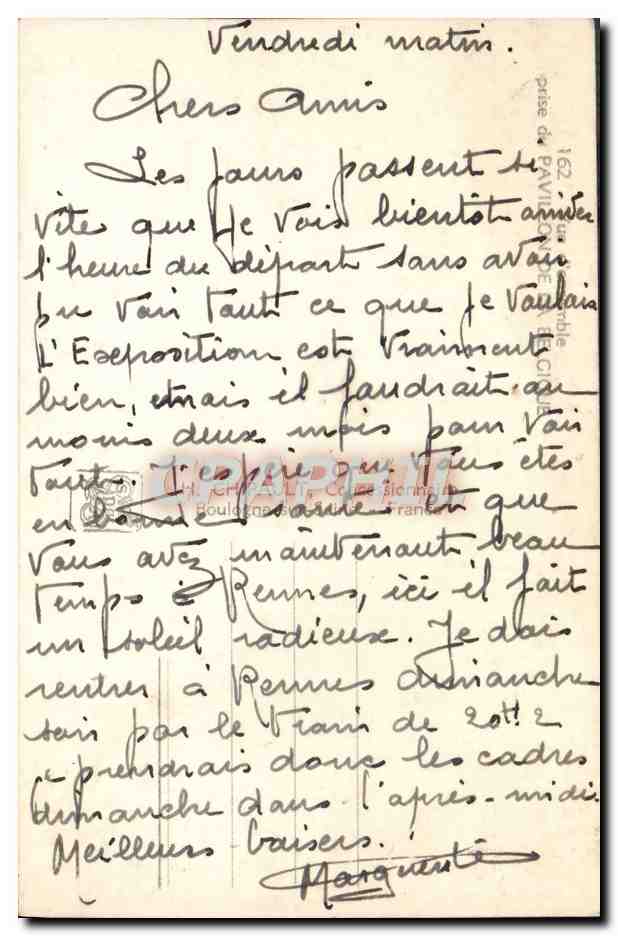 Vendredi matin.
Chers Amis
Les jours passent si
vite que je vois bientôt arriver
l'heure du départ sans avoir
pu voir tout ce que je voulais
L'Exposition est vraiment
bien, mais il faudrait au
moins deux mois pour voir
tout. J'espère que vous êtes
en bonne santé et que
vous avez maintenant beau
temps à Rennes, ici il fait
un soleil radieux. Je dois
rentrer à Rennes dimanche
soir par le train de 20H2
prendrais donc les cadres
dimanche dans l'après-midi.
Meilleurs baisers.
Marguerite
162 Vue d'ensemble
prise du PAVILLON DE LA BELGIQUE
H. CHIPAULT, Concessionnaire
Boulogne-sur-Seine France
CPAPHIL